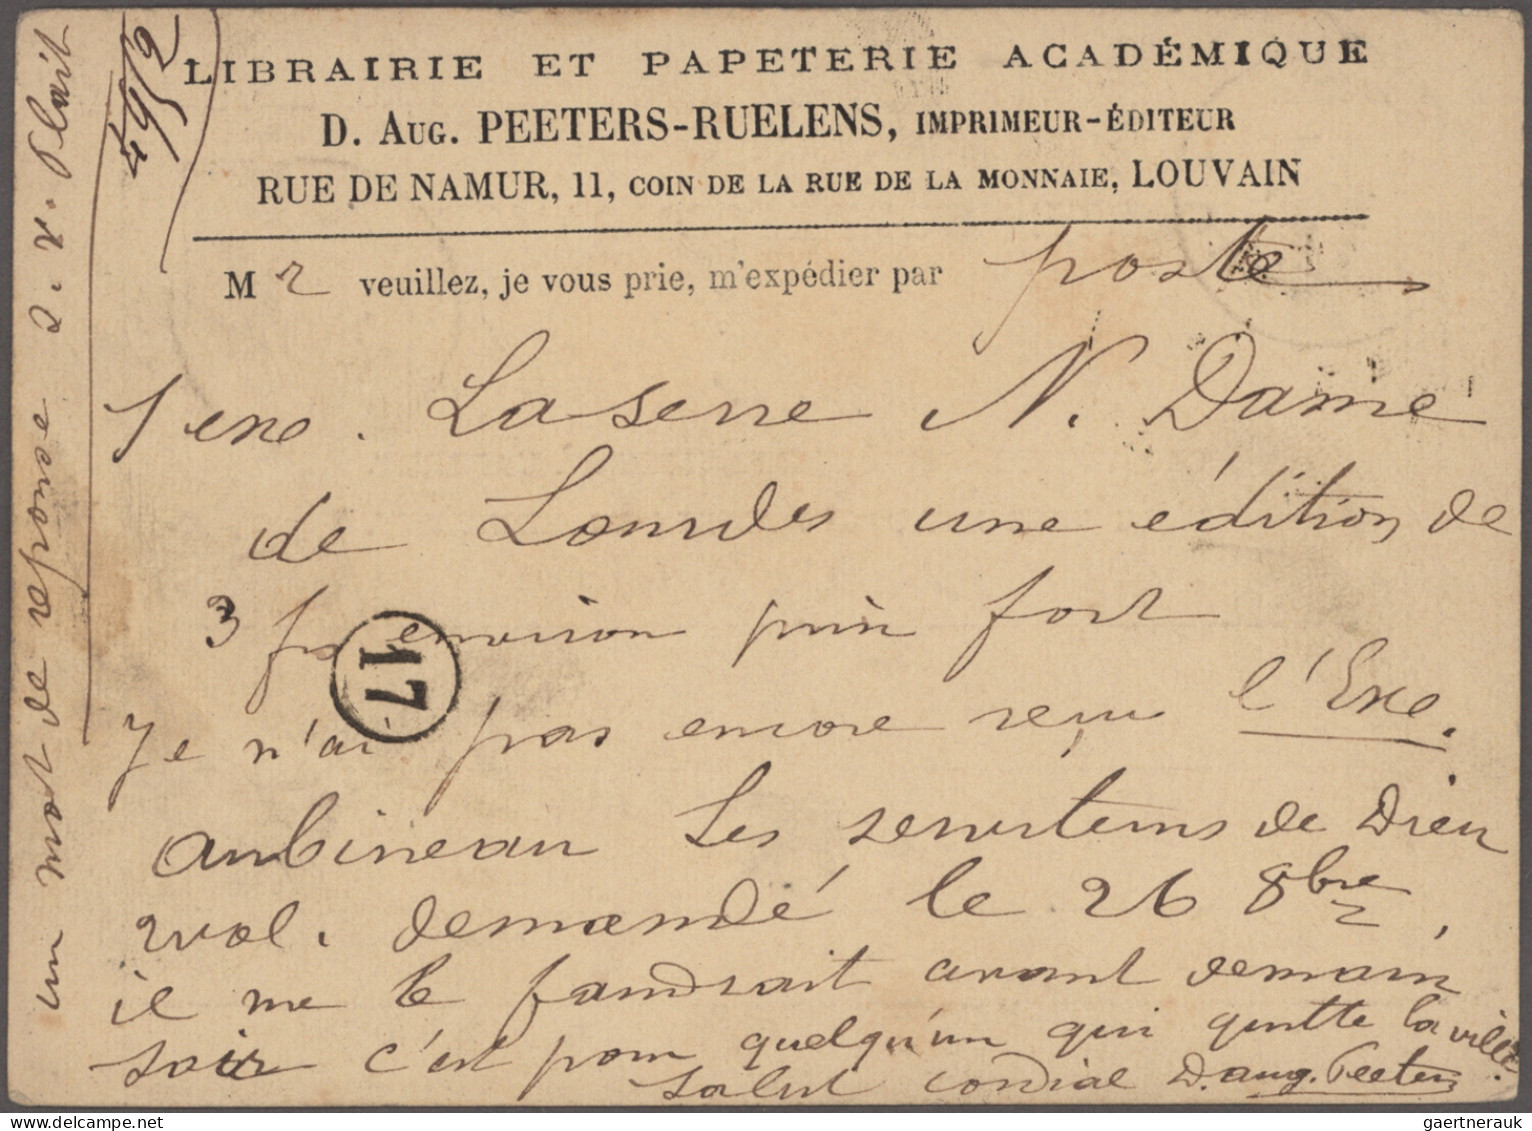 LIBRAIRIE ET PAPETERIE ACADÉMIQUE
D. AUG. PEETERS-RUELENS, IMPRIMEUR-ÉDITEUR
RUE DE NAMUR, 11, COIN DE LA RUE DE LA MONNAIE, LOUVAIN
M r veuillez, je vous prie, m'expédier par poste
1 exe. Laserre N. Dame
de Lourdes une édition de
3 frs environ prix fort
17
Je n'ai pas encore reçu l'Exe.
Aubineau Les serviteurs de Dieu
2 vol. demandé le 26 8bre,
il me le faudrait avant demain
soir c'est pour quelqu'un qui quitte la ville.
salut cordial D. Aug. Peeters
un mot de reponse s. v. plait
gaertnerauk